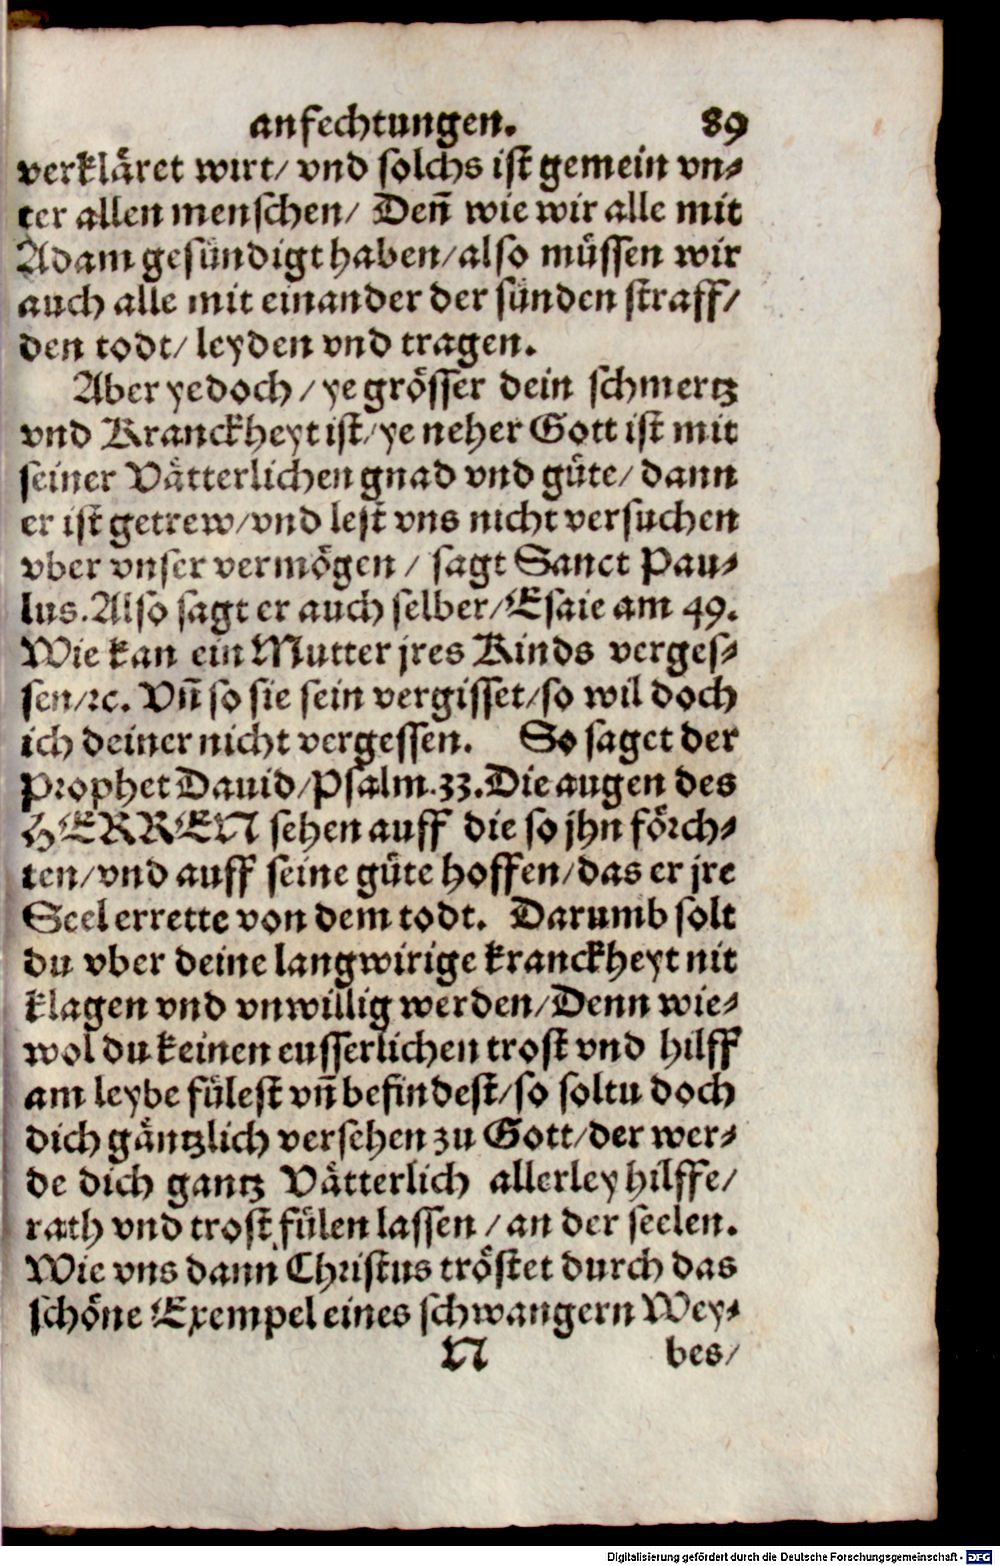 anfechtungen. 89
verkläret wirt/ vnd solchs ist gemein vn⸗
ter allen menschen/ Deñ wie wir alle mit
Adam gesündigt haben/also müssen wir
auch alle mit einander der sünden straff/
den todt/ leyden vnd tragen.
Aber yedoch/ ye grösser dein schmertz
vnd Kranckheyt ist/ye neher Gott ist mit
seiner Vätterlichen gnad vnd güte/ dann
er ist getrew/vnd lest vns nicht versuchen
vber vnser vermögen/ sagt Sanct Pau⸗
lus. Also sagt er auch selber/Esaie am 49.
Wie kan ein Mutter jres Kinds verges⸗
sen/ꝛc. Vñ so sie sein vergisset/so wil doch
ich deiner nicht vergessen. So saget der
Prophet Dauid/Psalm.33.Die augen des
HERREN sehen auff die so jhn förch⸗
ten/vnd auff seine güte hoffen/das er jre
Seel errette von dem todt. Darumb solt
du vber deine langwirige kranckheyt nit
klagen vnd vnwillig werden/Denn wie⸗
wol du keinen eusserlichen trost vnd hilff
am leybe fülest vñ befindest/so soltu doch
dich gäntzlich versehen zu Gott/der wer⸗
de dich gantz Vätterlich allerley hilffe/
rath vnd trost fülen lassen/an der seelen.
Wie vns dann Christus tröstet durch das
schöne Exempel eines schwangern Wey⸗
N bes/
Digitalisierung gefördert durch die Deutsche Forschungsgemeinschaft - DFG